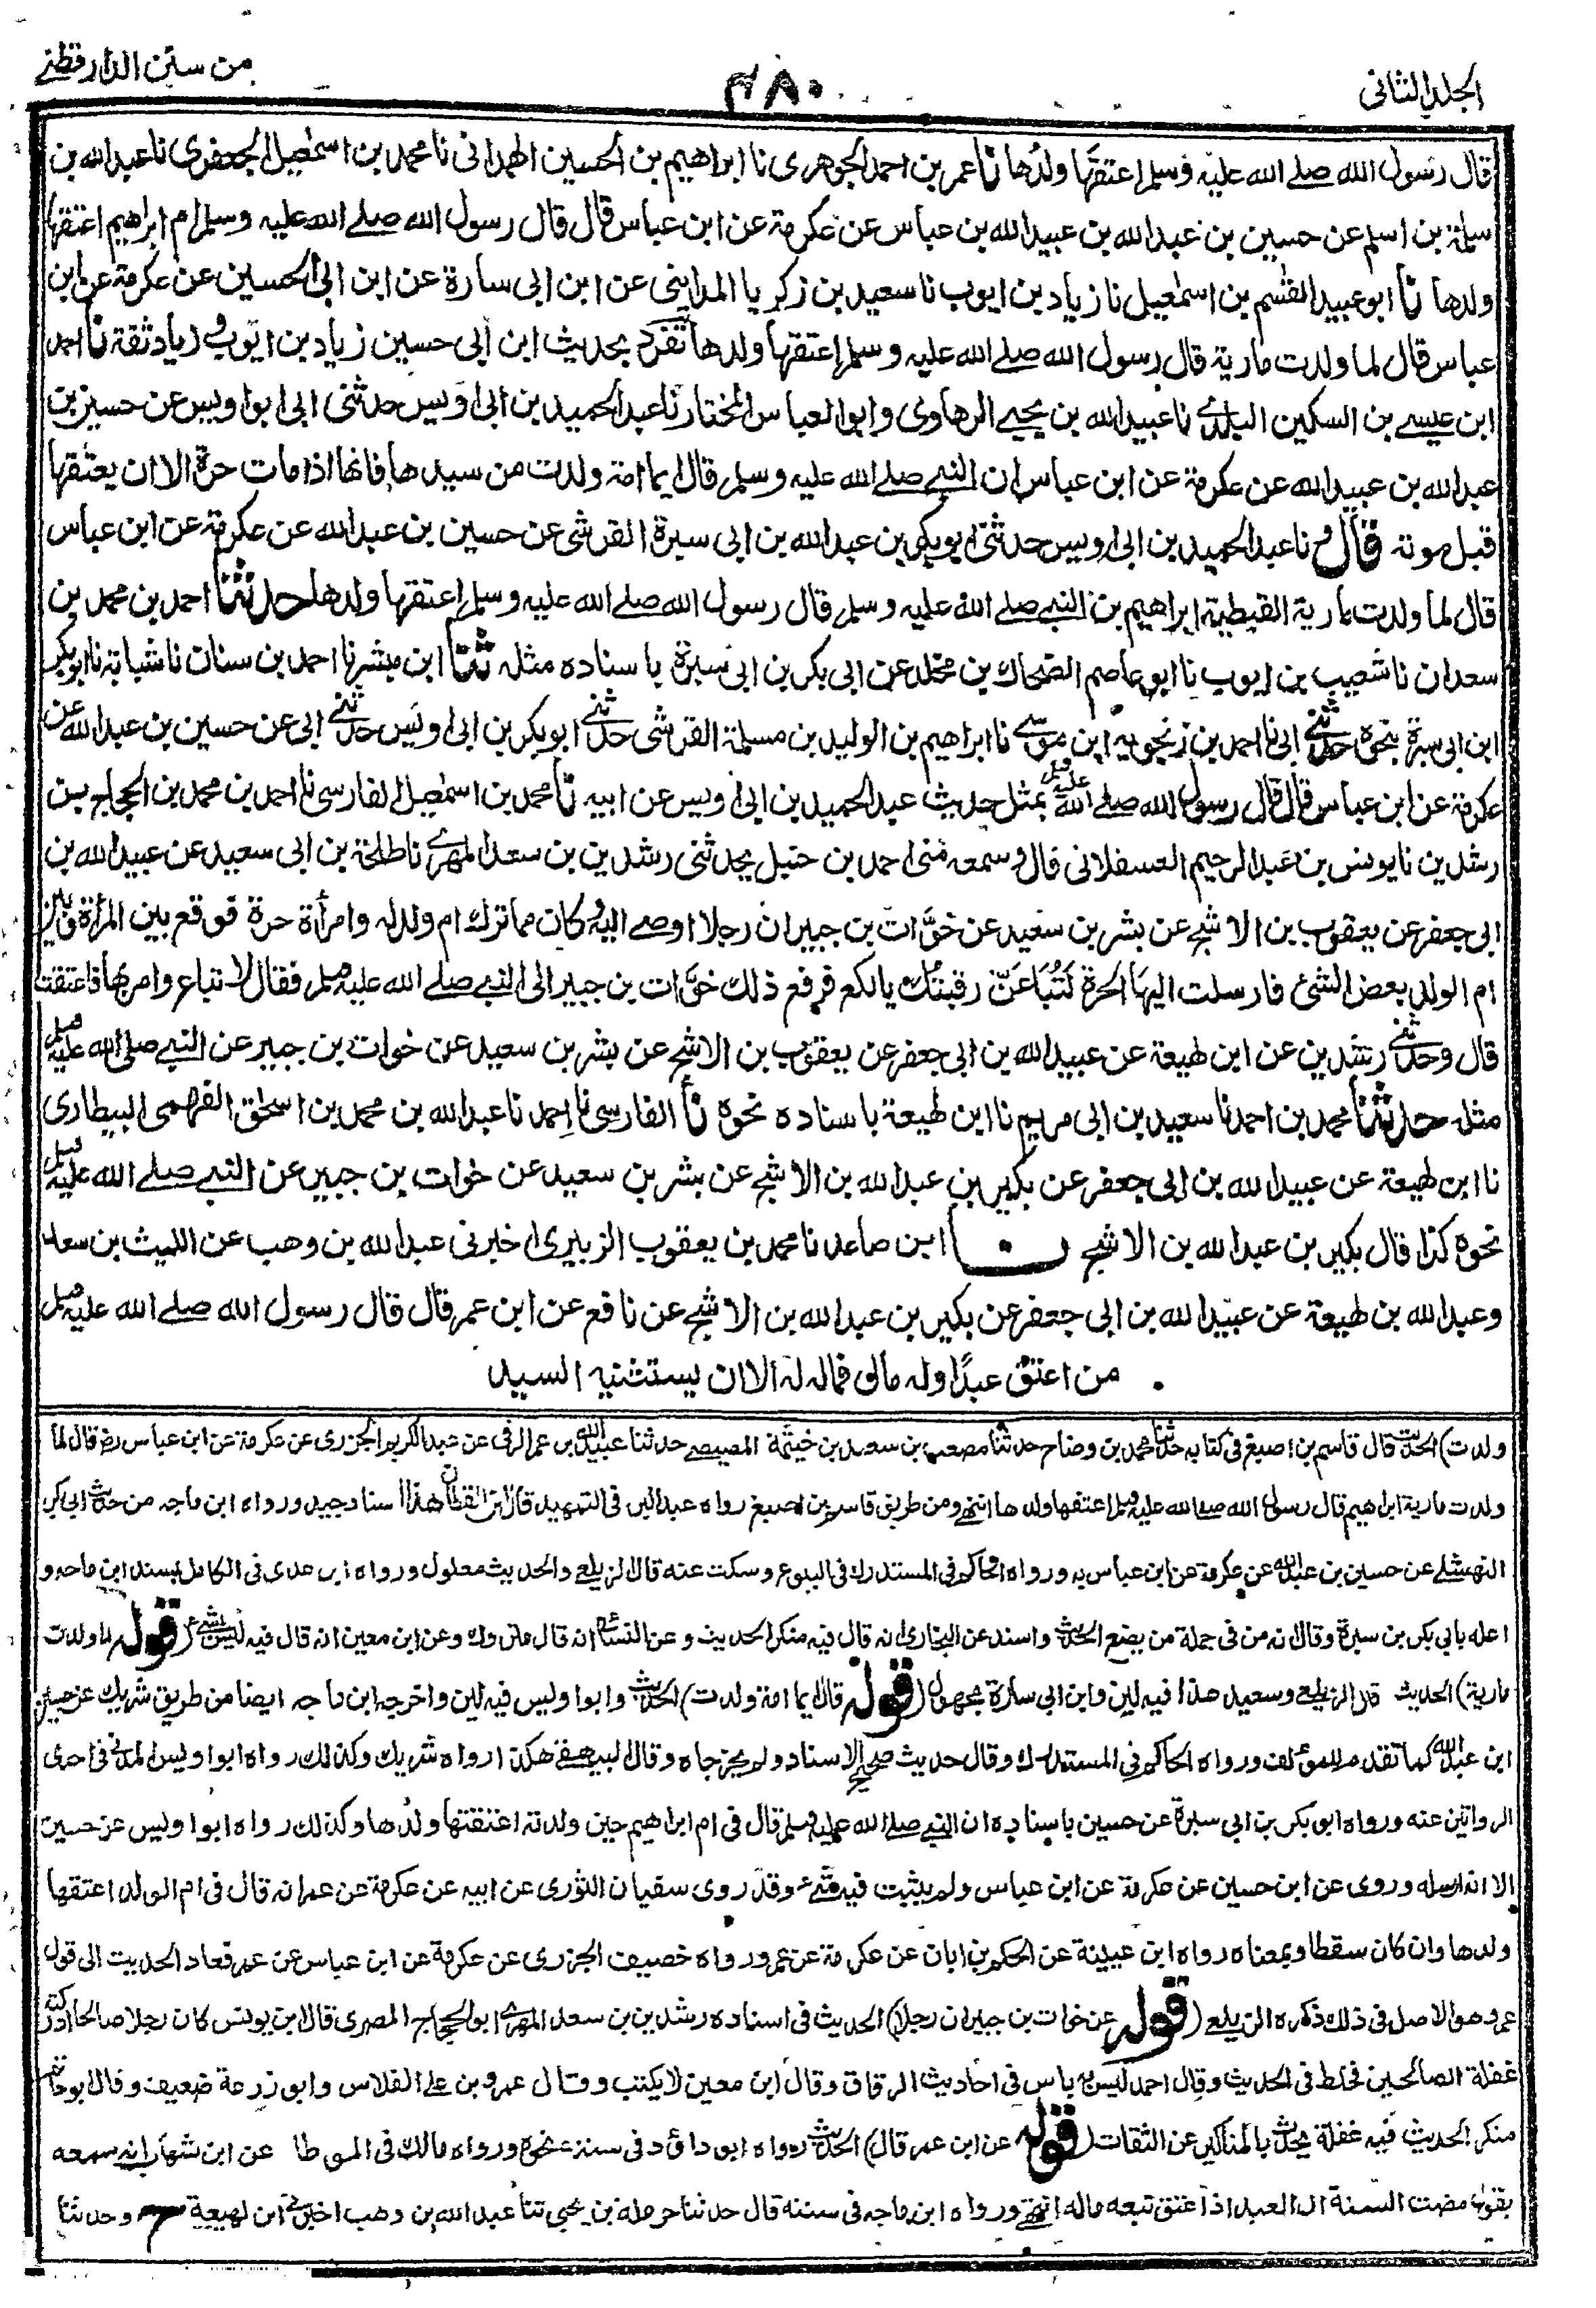 الجلد الثانى
٤٨٠
من سنن الدارقطنے
قال رسول الله صلے الله عليه وسلم اعتقها ولدها نا عمر بن احمد الجوهرى نا ابراهيم بن الحسين الهمدانى نا محمد بن اسمٰعيل الجعفرى نا عبد الله بن
سلمة بن اسلم عن حسين بن عبد الله بن عبيد الله بن عباس عن عكرمة عن ابن عباس قال قال رسول الله صلے الله عليه وسلم ام ابراهيم اعتقها
ولدها نا ابو عبيد القٰسم بن اسمٰعيل نا زياد بن ايوب نا سعيد بن زكريا المداينى عن ابن ابى سارة عن ابن ابى الحسين عن عكرمة عن ابن
عباس قال لما ولدت مارية قال رسول الله صلے الله عليه وسلم اعتقها ولدها تفرد بحديث ابن ابى حسين زياد بن ايوب و زياد ثقة نا احمد
ابن عيسے بن السكين البلدے نا عبيد الله بن يحيے الرهاوى وابو العباس المختار نا عبد الحميد بن ابى اويس حدثنى ابى ابو اويس عن حسين بن
عبد الله بن عبيد الله عن عكرمة عن ابن عباس ان النبے صلے الله عليه وسلم قال ايما امة ولدت من سيدها فانها اذا مات حرة الا ان يعتقها
قبل موته قال و نا عبد الحميد بن ابى اويس حدثنى ابو بكر بن عبد الله بن ابى سبرة القرشى عن حسين بن عبد الله عن عكرمة عن ابن عباس
قال لما ولدت مارية القبطية ابراهيم بن النبے صلے الله عليه وسلم قال رسول الله صلے الله عليه وسلم اعتقها ولدها حدثنا احمد بن محمد بن
سعدان نا شعيب بن ايوب نا ابو عاصم الضحاك بن مخلد عن ابى بكر بن ابى سبرة باسناده مثله ثنا ابن مبشر نا احمد بن سنان نا شبابة نا ابو بكر
ابن ابى سبرة بنحوه حدثنے ابى نا احمد بن زنجويه ابن موسے نا ابراهيم بن الوليد بن مسلمة القرشى حدثنے ابو بكر بن ابى اويس حدثنے ابى عن حسين بن عبد الله عن
عكرمة عن ابن عباس قال قال رسول الله صلے الله عليه وسلم بمثل حديث عبد الحميد بن ابى اويس عن ابيه نا محمد بن اسمٰعيل الفارسى نا احمد بن محمد بن الحجاج بن
رشدين نا يونس بن عبد الرحيم العسقلانى قال و سمعه منى احمد بن حنبل يحدثنى رشدين بن سعد المهرے نا طلحة بن ابى سعيد عن عبيد الله بن
ابى جعفر عن يعقوب بن الاشج عن بشر بن سعيد عن خوَّات بن جبير ان رجلا اوصے اليه و كان مما ترك ام ولد له وامرأة حرة فوقع بين المرأة وبين
ام الولد بعض الشئ فارسلت اليها الحرة لَتُبَاعَنّ رقبتك يا لكع فرفع ذلك خوَّات بن جبير الى النبے صلے الله عليه وسلم فقال لا تباع وامر بها فاعتقت
قال وحدثنے رشدين عن ابن لهيعة عن عبيد الله بن ابى جعفر عن يعقوب بن الاشج عن بشر بن سعيد عن خوات بن جبير عن النبے صلى الله عليه وسلم
مثله حدثنا محمد بن احمد نا سعيد بن ابى مريم نا ابن لهيعة باسناده نحوه نا الفارسى نا احمد نا عبد الله بن محمد بن اسحٰق الفهمى البيطارى
نا ابن لهيعة عن عبيد الله بن ابى جعفر عن بكير بن عبد الله بن الاشج عن بشر بن سعيد عن خوات بن جبير عن النبے صلے الله عليه وسلم
نحوه كذا قال بكير بن عبد الله بن الاشج نا ابن صاعد نا محمد بن يعقوب الزبيرى اخبرنى عبد الله بن وهب عن الليث بن سعد
وعبد الله بن لهيعة عن عبيد الله بن ابى جعفر عن بكير بن عبد الله بن الاشج عن نافع عن ابن عمر قال قال رسول الله صلے الله عليه وسلم
من اعتق عبدًا وله مال فماله له الا ان يستثنيه السيد
ولدت) الحديث قال قاسم بن اصبغ فى كتابه حدثنا محمد بن وضاح حدثنا مصعب بن سعيد بن خيثمة المصيصے حدثنا عبيد الله بن عمر الرقى عن عبد الكريم الجزرى عن عكرمة عن ابن عباس رض قال لما
ولدت مارية ابراهيم قال رسول الله صلے الله عليه وسلم اعتقها ولدها انتهے ومن طريق قاسم بن اصبغ رواه عبد البر فى التمهيد قال ابن القطان هذا اسناد جيد ورواه ابن ماجه من حديث ابى بكر
النهشلے عن حسين بن عبد الله عن عكرمة عن ابن عباس به ورواه الحاكم فى المستدرك فى البيوع وسكت عنه قال الزيلعے والحديث معلول ورواه ابن عدى فى الكامل بسند ابن ماجه و
اعله بابى بكر بن سبرة وقال انه من فى جملة من يضع الحديث واسند عن البخارى انه قال فيه منكر الحديث وعن النسائى انه قال متروك وعن ابن معين انه قال فيه ليس بشئ (قوله لما ولدت
مارية) الحديث قال الزيلعے وسعيد هذا فيه لين وابن ابى سارة مجهول (قوله قال ايما امة ولدت) الحديث وابو اويس فيه لين واخرجه ابن ماجه ايضا من طريق شريك عن حسين
ابن عبد الله كما تقدم للمؤلف ورواه الحاكم فى المستدرك وقال حديث صحيح الاسناد ولم يخرجاه وقال البيهقے هكذا رواه شريك وكذلك رواه ابو اويس المدنى فى احدى
الروايتين عنه ورواه ابو بكر بن ابى سبرة عن حسين باسناده ان النبے صلے الله عليه وسلم قال فى ام ابراهيم حين ولدته اعتقتها ولدها وكذلك رواه ابو اويس عن حسين
الا انه ارسله وروى عن ابن حسين عن عكرمة عن ابن عباس ولم يثبت فيه شئ وقد روى سفيان الثورى عن ابيه عن عكرمة عن عمر انه قال فى ام الولد اعتقها
ولدها وان كان سقطا وبمعناه رواه ابن عيينة عن الحكم بن ابان عن عكرمة عن عمر ورواه خصيف الجزرى عن عكرمة عن ابن عباس عن عمر فعاد الحديث الى قول
عمر وهو الاصل فى ذلك ذكره الزيلعے (قوله عن خوات بن جبير ان رجلا) الحديث فى اسناده رشدين بن سعد المهرے ابو الحجاج المصرى قال ابن يونس كان رجلا صالحا ادركته
غفلة الصالحين فخلط فى الحديث وقال احمد ليس به باس فى احاديث الرقاق وقال ابن معين لا يكتب وقال عمرو بن علے الفلاس وابو زرعة ضعيف وقال ابو حاتم
منكر الحديث فيه غفلة يحدث بالمناكير عن الثقات (قوله عن ابن عمر قال) الحديث رواه ابو داؤد فى سننه نحوه ورواه مالك فى الموطا عن ابن شهاب انه سمعه
يقول مضت السنة ان العبد اذا عتق تبعه ماله انتهے ورواه ابن ماجه فى سننه قال حدثنا حرملة بن يحيى ثنا عبد الله بن وهب اخبرنے ابن لهيعة ح وحدثنا